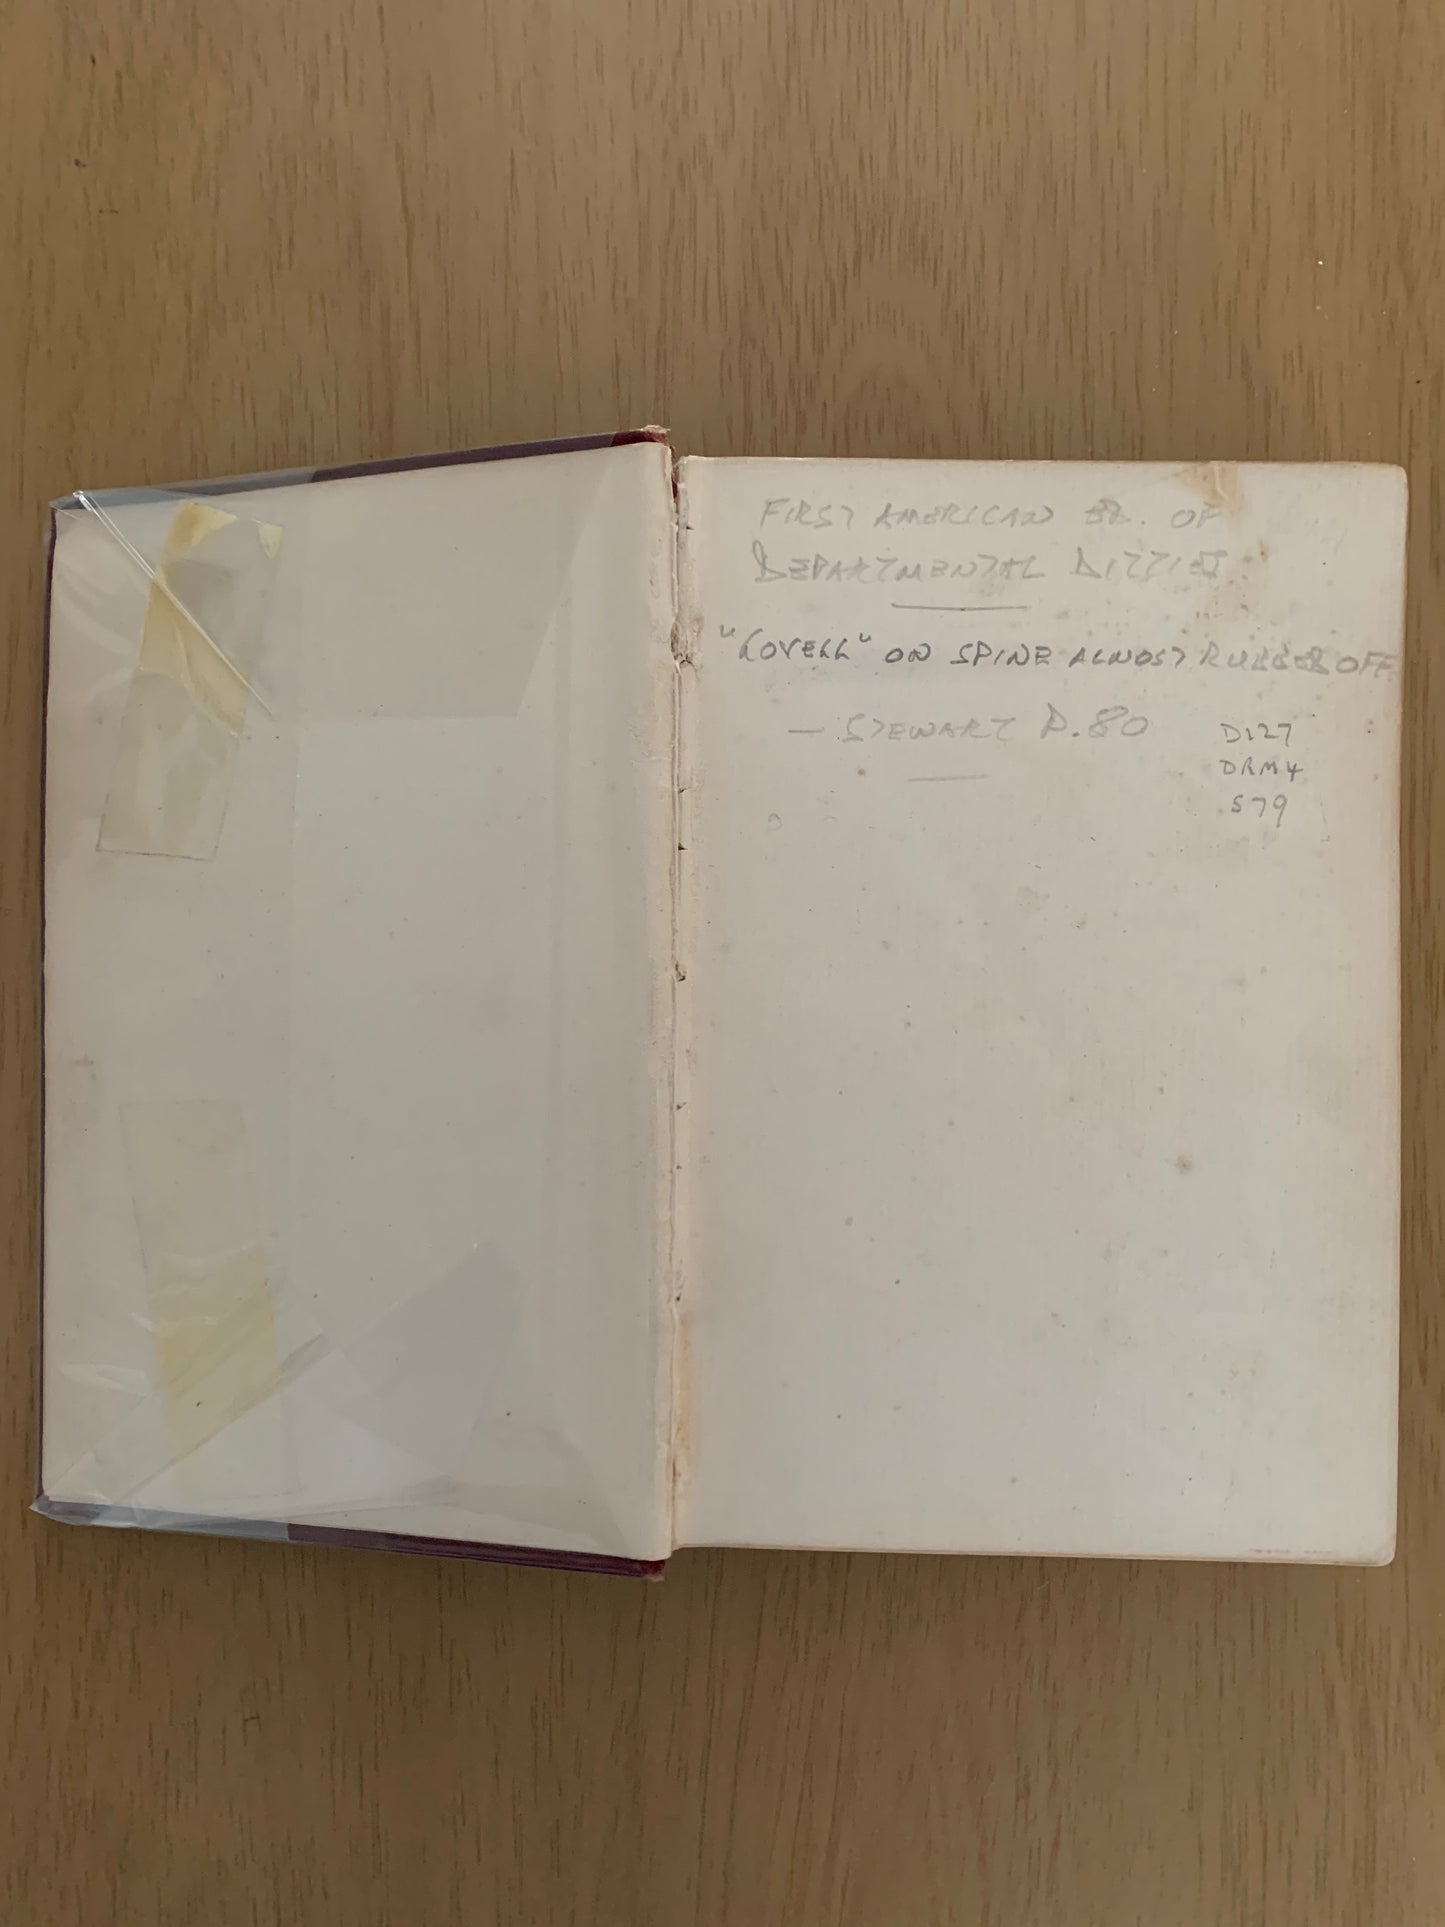 FIRST AMERICAN ED. OF
DEPARTMENTAL DITTIES
"LOVELL" ON SPINE ALMOST RUBBED OFF
— STEWART P. 80
D127
DRM4
S79